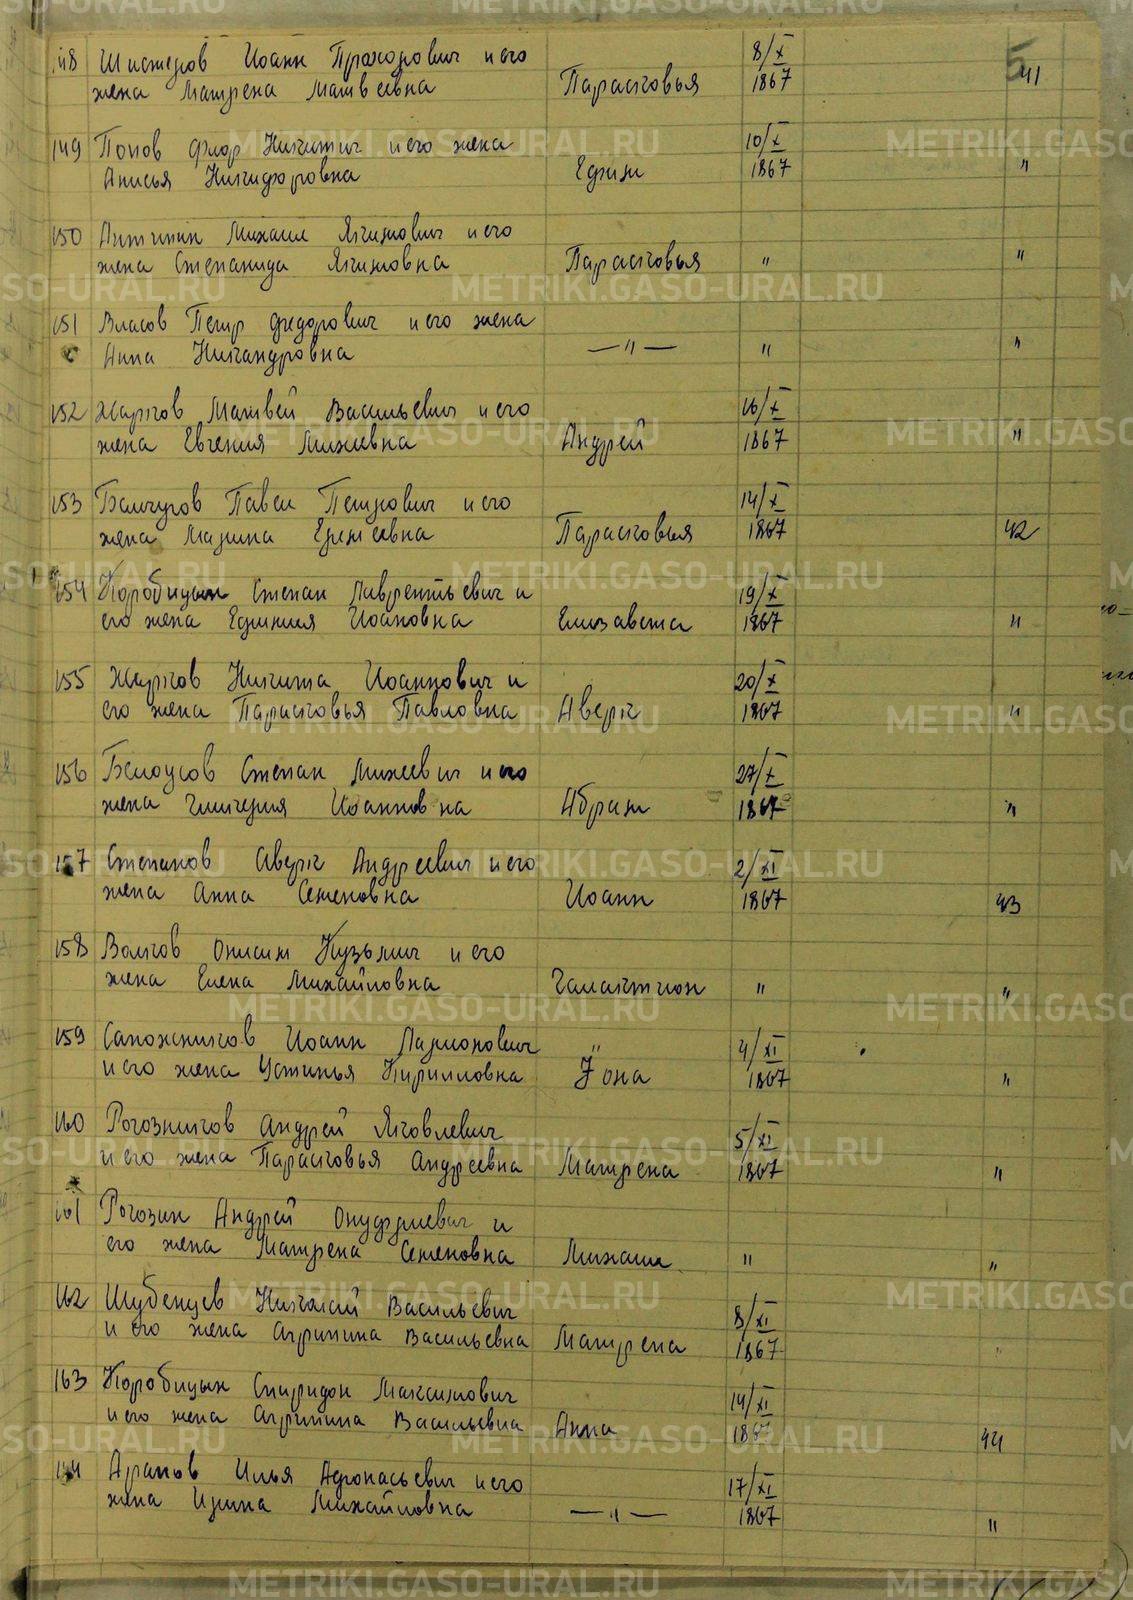 148 Шистеров Иоанн Прохорович и его
жена Матрена Матвеевна Парасковья 8/X 1867 41
149 Попов Флор Никитич и его жена
Анисья Никифоровна Ефим 10/X 1867 "
150 Антипин Михаил Якимович и его
жена Степанида Якимовна Парасковья " "
151 Власов Петр Федорович и его жена
Анна Никандровна —"— " "
152 Жарков Матвей Васильевич и его
жена Евгения Михеевна Андрей 16/X 1867 "
153 Балчугов Павел Петрович и его
жена Марина Еремеевна Парасковья 14/X 1867 42
154 Коробицын Степан Лаврентьевич и
его жена Ефимия Иоановна Елизавета 19/X 1867 "
155 Жарков Никита Иоаннович и
его жена Парасковья Павловна Аверк 20/X 1867 "
156 Белоусов Степан Михеевич и его
жена Гликерия Иоанновна Абрам 27/X 1867 "
157 Степанов Аверк Андреевич и его
жена Анна Семеновна Иоанн 2/XI 1867 43
158 Волков Онисим Кузьмич и его
жена Елена Михайловна Галактион " "
159 Сапожников Иоанн Ларионович
и его жена Устинья Кирилловна " Иона 4/XI 1867 "
160 Рогозников Андрей Яковлевич
и его жена Парасковья Андреевна Матрена 5/XI 1867 "
161 Рогозин Андрей Онуфриевич и
его жена Матрена Семеновна Михаил " "
162 Шубенцев Николай Васильевич
и его жена Агрипина Васильевна Матрена 8/XI 1867 "
163 Коробицын Спиридон Максимович
и его жена Агрипина Васильевна Анна 14/XI 1867 44
164 Арапов Илья Афонасьевич и его
жена Ирина Михайловна —"— 17/XI 1867 "
5
METRIKI.GASO-URAL.RU